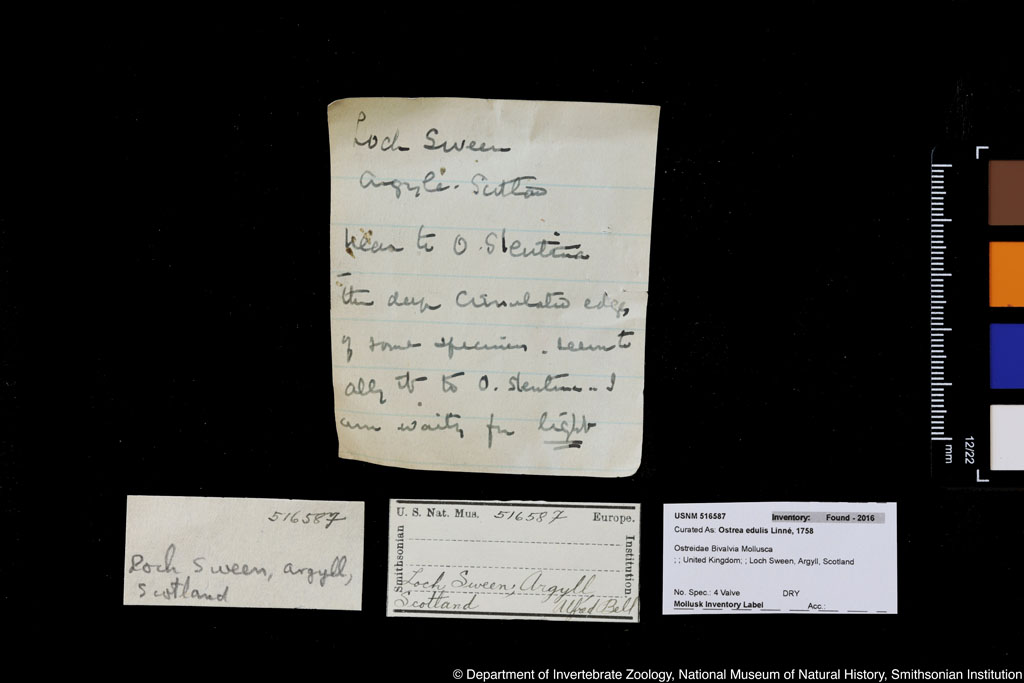 Loch Sween
Argyle. Scotland
Near to O. Stentina
The deep Crenulated edges
of some specimens. seem to
ally it to O. stentina.. I
am waiting for light
516587
Loch Sween, Argyll,
Scotland
U. S. Nat. Mus. 516587 Europe.
Smithsonian
Institution.
Loch Sween, Argyll
Scotland Alfred Bell
USNM 516587 Inventory: Found - 2016
Curated As: Ostrea edulis Linné, 1758
Ostreidae Bivalvia Mollusca
; ; United Kingdom; ; Loch Sween, Argyll, Scotland
No. Spec.: 4 Valve DRY
Mollusk Inventory Label Acc.:
mm
12/22
© Department of Invertebrate Zoology, National Museum of Natural History, Smithsonian Institution